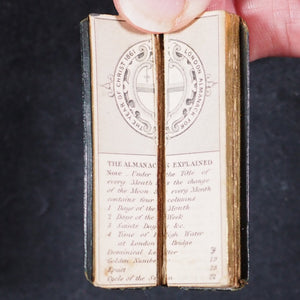 LONDON ALMANACK FOR THE YEAR OF CHRIST 1861
THE ALMANAC EXPLAINED
Note Under the Title of
every Month the change
of the Moon every Month
contains four columns
1 Days of the Month
2 Days of the Week
3 Saints Days &c.
4 Time of High Water
at London Bridge
Dominical Letter F
Golden Number 19
Epact 18
Cycle of the Sun 22